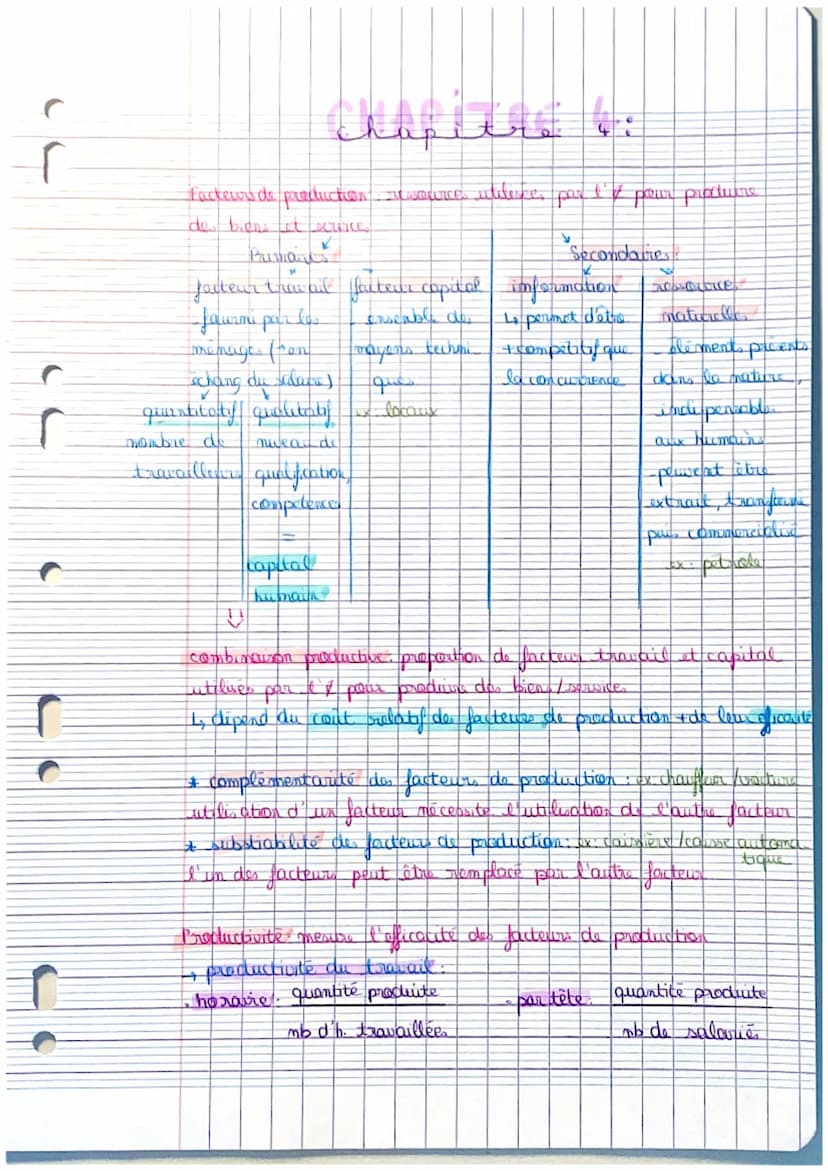 CHAPITRE 4:
chapitre 4:
Facteurs de production: ressources utilisées par l'≠ pour produire
des biens et services
Primaires
Secondaires:
facteur travail
-fourni par les
ménages (→ en
échang du salaire)
quantitatif
nombre de
travailleurs
qualitatif
niveau de
qualification,
compétences
=
capital
humain
facteur capital
- ensemble des
moyens techni
ques
ex: locaux
information
↳ permet d'être
+ compétitif que
la concurrence
ressources
naturelles
- éléments présents
dans la nature,
indispensables
aux humains
-peuvent être
extrait, transformé
puis commercialisé
ex: pétrole
combinaison productive: proportion de facteur travail et capital
utilisés par l'≠ pour produire des biens/services
↳ dépend du coût relatif des facteurs de production + de leur efficacité
* complémentarité des facteurs de production: ex: chauffeur/voiture
utilisation d'un facteur nécessite l'utilisation de l'autre facteur
* des facteurs de production: ex: caissière/caisse automa
tique
l'un des facteurs peut être remplacé par l'autre facteur
Productivité: mesure l'efficacité des facteurs de production
→ productivité du travail:
. horaire: quantité produite
nb d'h. travaillées
- par tête: quantité produite
nb de salariés